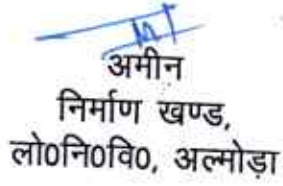 अमीन
निर्माण खण्ड,
लो०नि०वि०, अल्मोड़ा